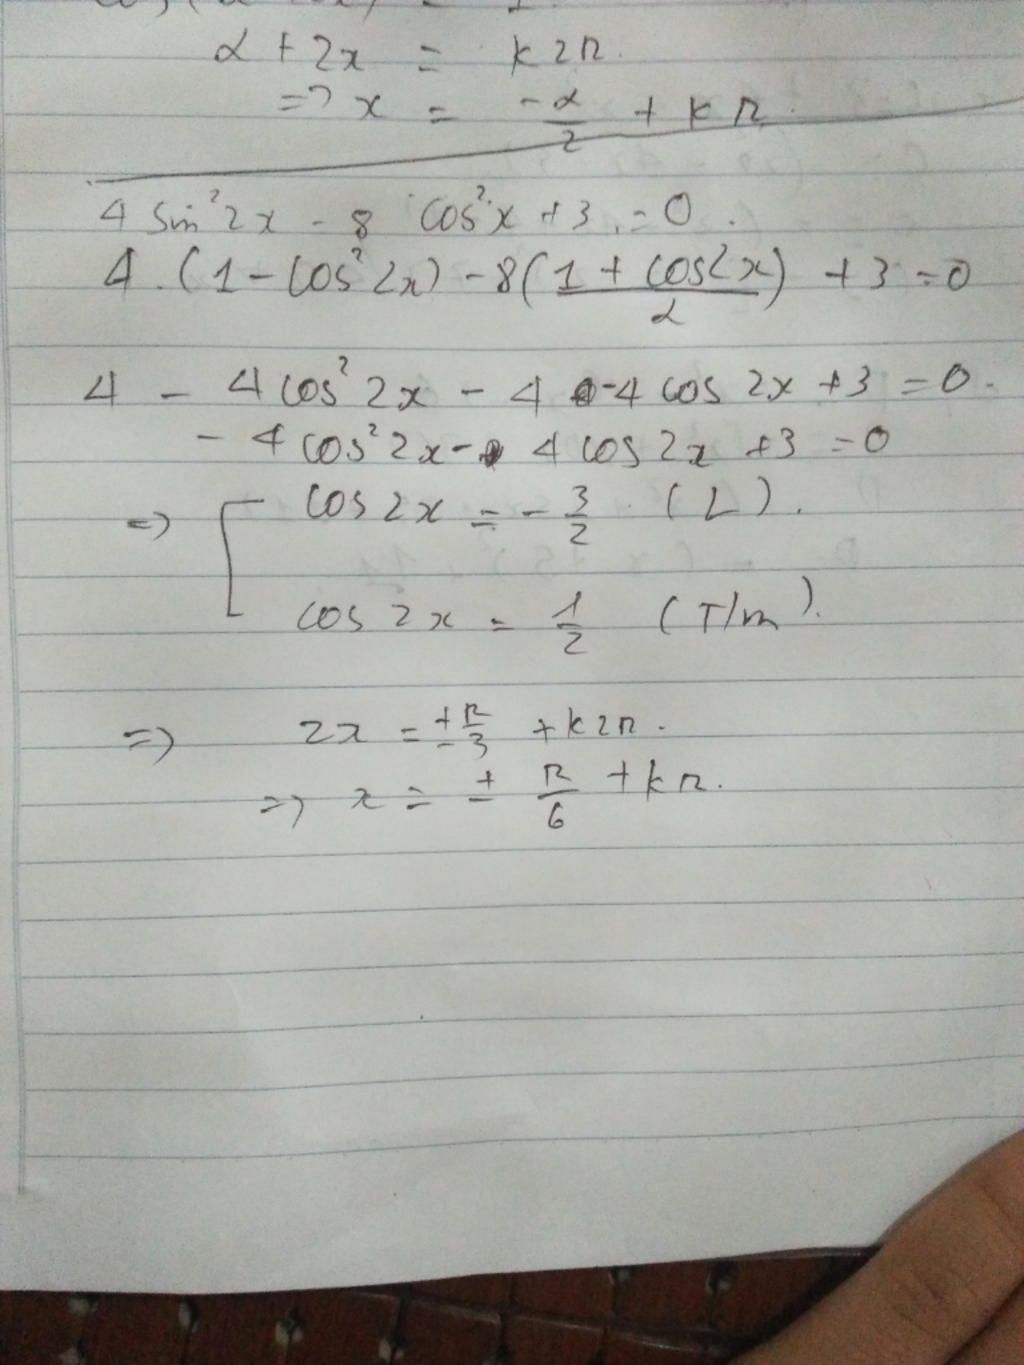 α + 2x = k2π.
=> x = -α/2 + kπ.
4 sin²2x - 8 cos²x + 3 = 0.
4.(1 - cos²2x) - 8(1 + cos2x/2) + 3 = 0
4 - 4cos²2x - 4 - 4cos 2x + 3 = 0.
- 4cos²2x - 4cos2x + 3 = 0
=> [ cos 2x = - 3/2 (L).
cos 2x = 1/2 (T/m).
=> 2x = ± π/3 + k2π.
=> x = ± π/6 + kπ.